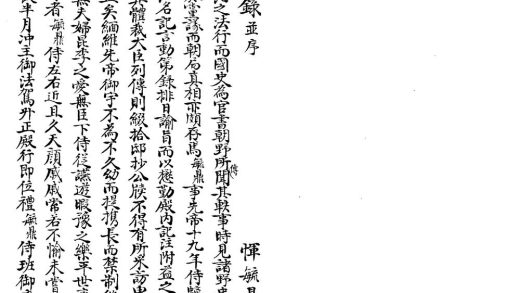 錄並序 惲毓
之法行而國史為官書朝野所傳聞其軼事時見諸野史
黨議而朝局真相亦頗存焉毓鼎事先帝十九年侍
名記言動第錄排日諭員而以懋勤殿內記注附益之
體裁大臣列傳則綴拾邸抄公牘不得有所采訪
矣緬維先帝御宇不為不久幼而提攜長而禁制
無夫婦昆季之愛無臣下侍從讌遊暇豫之樂平世
者毓鼎侍左右近且久天顏戚戚常若不愉未嘗
半月沖主御法駕升正殿行即位禮毓鼎侍班御